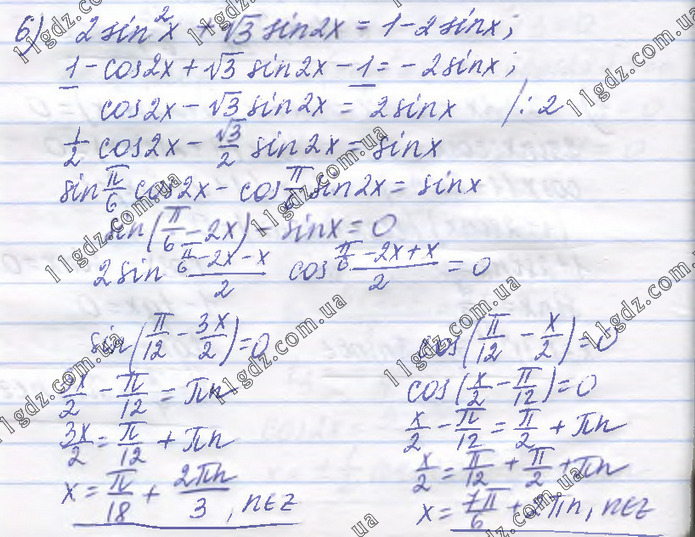 6) 2sin²x + √3 sin2x = 1 - 2sinx;
1 - cos2x + √3 sin2x - 1 = -2sinx;
cos2x - √3 sin2x = 2sinx /:2
1/2 cos2x - √3/2 sin2x = sinx
sin π/6 cos2x - cos π/6 sin2x = sinx
sin(π/6 - 2x) - sinx = 0
2sin (π/6 - 2x - x)/2 cos (π/6 - 2x + x)/2 = 0
sin(π/12 - 3x/2) = 0
3x/2 - π/12 = πn
3x/2 = π/12 + πn
x = π/18 + 2πn/3, n∈Z
cos(π/12 - x/2) = 0
cos(x/2 - π/12) = 0
x/2 - π/12 = π/2 + πn
x/2 = π/12 + π/2 + πn
x = 7π/6 + 2πn, n∈Z
11gdz.com.ua